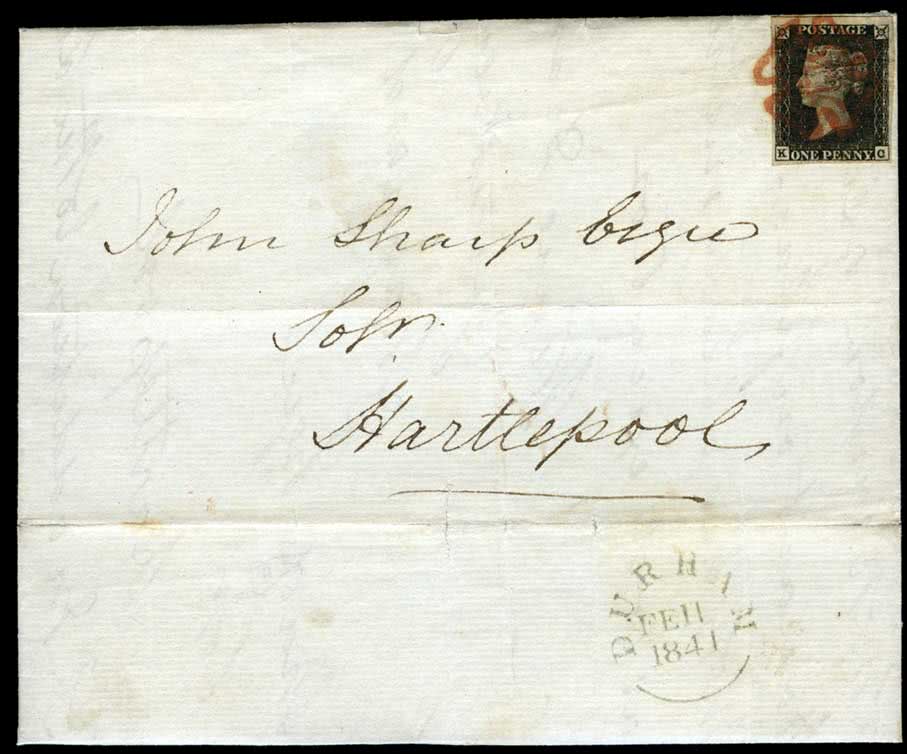 POSTAGE
K ONE PENNY C
John Sharp Esqre
Solr.
Hartlepool
DURHAM
FE 11
1841